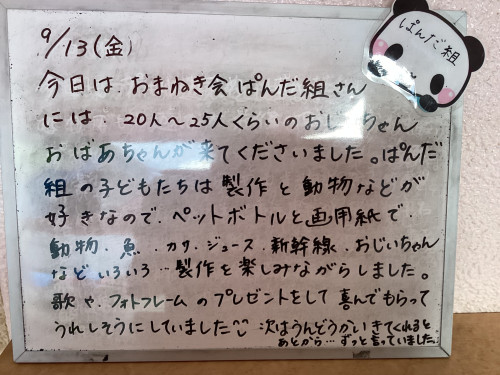 ぱんだ組
9/13(金)
今日は、おまねき会 ぱんだ組さん
には、20人〜25人くらいのおじいちゃん
おばあちゃんが来てくださいました。ぱんだ
組の子どもたちは製作と動物などが
好きなので、ペットボトルと画用紙で
動物、魚、カサ、ジュース、新幹線、おじいちゃん
などいろいろ…製作を楽しみながらしました。
歌や、フォトフレームのプレゼントをして喜んでもらって
うれしそうにしていました 次はうんどうかいきてくれると
あとから…ずっと言っていました。